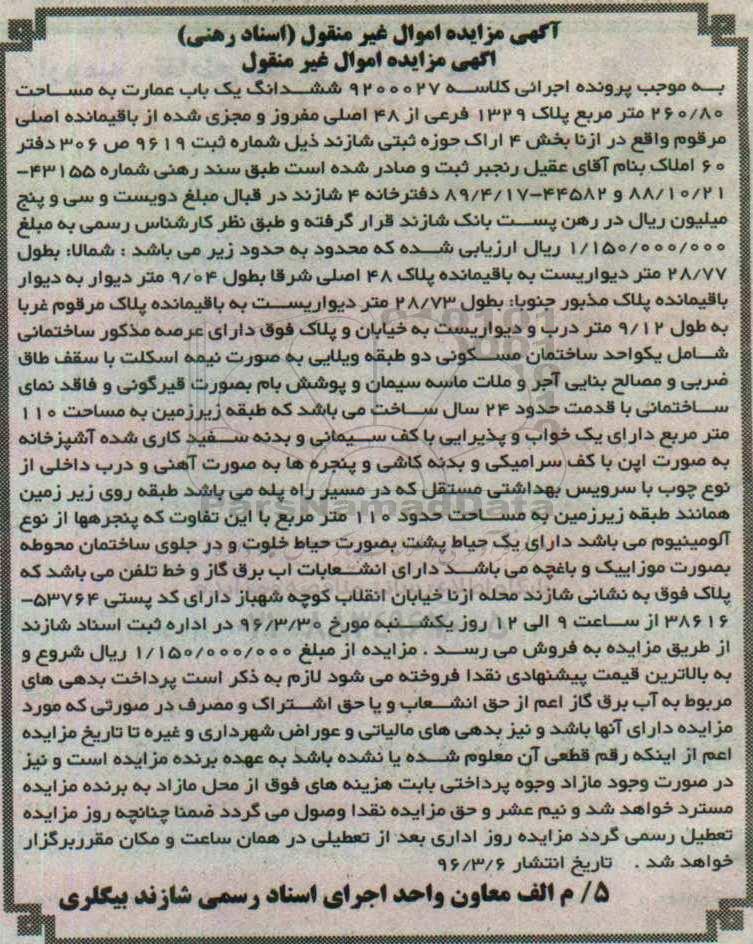 آگهی مزایده اموال غیر منقول (اسناد رهنی)
اگهی مزایده اموال غیر منقول
به موجب پرونده اجرائی کلاسه ۹۲۰۰۰۲۷ ششدانگ یک باب عمارت به مساحت
۲۶۰/۸۰ متر مربع پلاک ۱۳۲۹ فرعی از ۴۸ اصلی مفروز و مجزی شده از باقیمانده اصلی
مرقوم واقع در ازنا بخش ۴ اراک حوزه ثبتی شازند ذیل شماره ثبت ۹۶۱۹ ص ۳۰۶ دفتر
۶۰ املاک بنام آقای عقیل رنجبر ثبت و صادر شده است طبق سند رهنی شماره ۴۳۱۵۵-
۸۸/۱۰/۲۱ و ۴۴۵۸۲-۸۹/۴/۱۷ دفترخانه ۴ شازند در قبال مبلغ دویست و سی و پنج
میلیون ریال در رهن پست بانک شازند قرار گرفته و طبق نظر کارشناس رسمی به مبلغ
۱/۱۵۰/۰۰۰/۰۰۰ ریال ارزیابی شده که محدود به حدود زیر می باشد : شمالا: بطول
۲۸/۷۷ متر دیواریست به باقیمانده پلاک ۴۸ اصلی شرقا بطول ۹/۰۴ متر دیوار به دیوار
باقیمانده پلاک مذبور جنوبا: بطول ۲۸/۷۳ متر دیواریست به باقیمانده پلاک مرقوم غربا
به طول ۹/۱۲ متر درب و دیواریست به خیابان و پلاک فوق دارای عرصه مذکور ساختمانی
شامل یکواحد ساختمان مسکونی دو طبقه ویلایی به صورت نیمه اسکلت با سقف طاق
ضربی و مصالح بنایی آجر و ملات ماسه سیمان و پوشش بام بصورت قیرگونی و فاقد نمای
ساختمانی با قدمت حدود ۲۴ سال ساخت می باشد که طبقه زیرزمین به مساحت ۱۱۰
متر مربع دارای یک خواب و پذیرایی با کف سیمانی و بدنه سفید کاری شده آشپزخانه
به صورت اپن با کف سرامیکی و بدنه کاشی و پنجره ها به صورت آهنی و درب داخلی از
نوع چوب با سرویس بهداشتی مستقل که در مسیر راه پله می باشد طبقه روی زیر زمین
همانند طبقه زیرزمین به مساحت حدود ۱۱۰ متر مربع با این تفاوت که پنجرهها از نوع
آلومینیوم می باشد دارای یک حیاط پشت بصورت حیاط خلوت و در جلوی ساختمان محوطه
بصورت موزاییک و باغچه می باشد دارای انشعابات اب برق گاز و خط تلفن می باشد که
پلاک فوق به نشانی شازند محله ازنا خیابان انقلاب کوچه شهباز دارای کد پستی ۵۳۷۶۴-
۳۸۶۱۶ از ساعت ۹ الی ۱۲ روز یکشنبه مورخ ۹۶/۳/۳۰ در اداره ثبت اسناد شازند
از طریق مزایده به فروش می رسد . مزایده از مبلغ ۱/۱۵۰/۰۰۰/۰۰۰ ریال شروع و
به بالاترین قیمت پیشنهادی نقدا فروخته می شود لازم به ذکر است پرداخت بدهی های
مربوط به آب برق گاز اعم از حق انشعاب و یا حق اشتراک و مصرف در صورتی که مورد
مزایده دارای آنها باشد و نیز بدهی های مالیاتی و عوراض شهرداری و غیره تا تاریخ مزایده
اعم از اینکه رقم قطعی آن معلوم شده یا نشده باشد به عهده برنده مزایده است و نیز
در صورت وجود مازاد وجوه پرداختی بابت هزینه های فوق از محل مازاد به برنده مزایده
مسترد خواهد شد و نیم عشر و حق مزایده نقدا وصول می گردد ضمنا چنانچه روز مزایده
تعطیل رسمی گردد مزایده روز اداری بعد از تعطیلی در همان ساعت و مکان مقرربرگزار
خواهد شد . تاریخ انتشار ۹۶/۳/۶
۵/ م الف معاون واحد اجرای اسناد رسمی شازند بیگلری